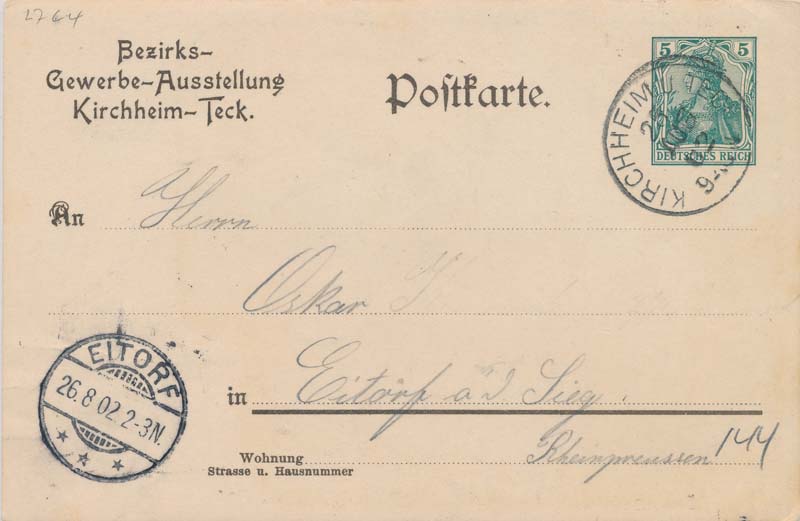 2764
Bezirks-
Gewerbe-Ausstellung
Kirchheim-Teck.
Postkarte.
5 5
DEUTSCHES REICH
KIRCHHEIM U. TECK
25
AUG
02
An Herrn
Oskar
in Eitorf a. d. Sieg.
EITORF
26.8.02.2-3N.
Wohnung Rheinpreussen
Strasse u. Hausnummer
144